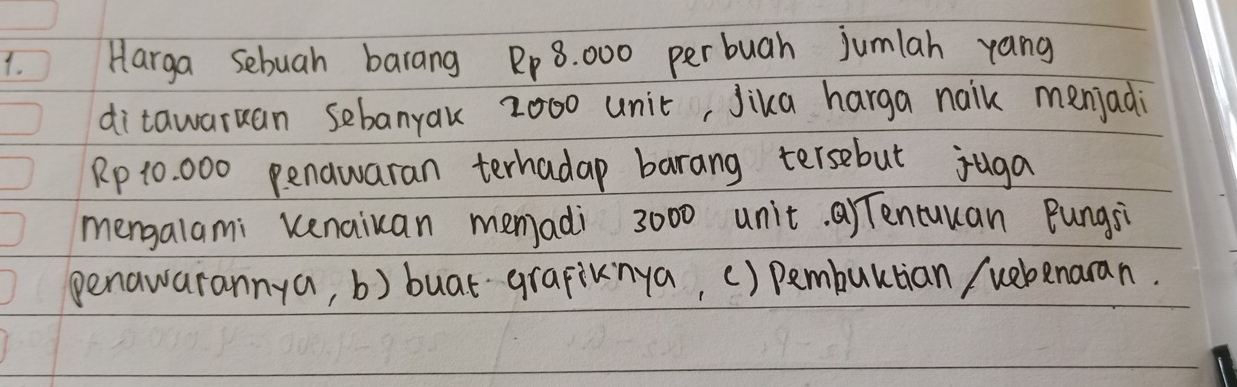 1. Harga sebuah barang Rp 8.000 perbuah jumlah yang
ditawarkan sebanyak 2000 unit, Jika harga naik menjadi
Rp 10.000 penawaran terhadap barang tersebut juga
mengalami kenaikan menjadi 3000 unit .a) Tentukan Fungsi
penawarannya, b) buat grafiknya, c) Pembuktian / kebenaran.